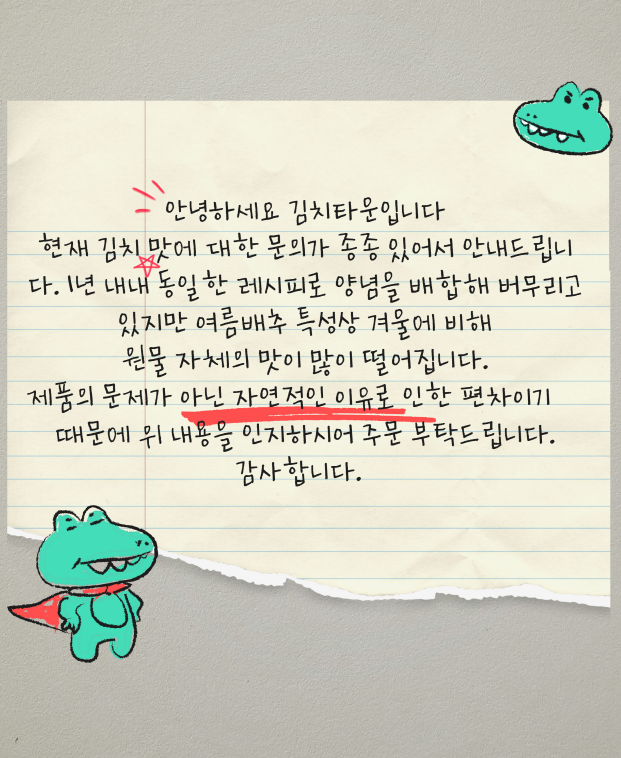 안녕하세요 김치타운입니다
현재 김치 맛에 대한 문의가 종종 있어서 안내드립니
다. 1년 내내 동일한 레시피로 양념을 배합해 버무리고
있지만 여름배추 특성상 겨울에 비해
원물 자체의 맛이 많이 떨어집니다.
제품의 문제가 아닌 자연적인 이유로 인한 편차이기
때문에 위 내용을 인지하시어 주문 부탁드립니다.
감사합니다.